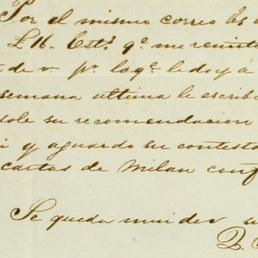 Por el mismo correo
£16. Estg. qe. me remite
de v. pr. lo qe. le doy á
semana ultima le escribi
sole su recomendacion
i y aguardo su contesta
cartas de Milan conf
Se queda muí de v. s